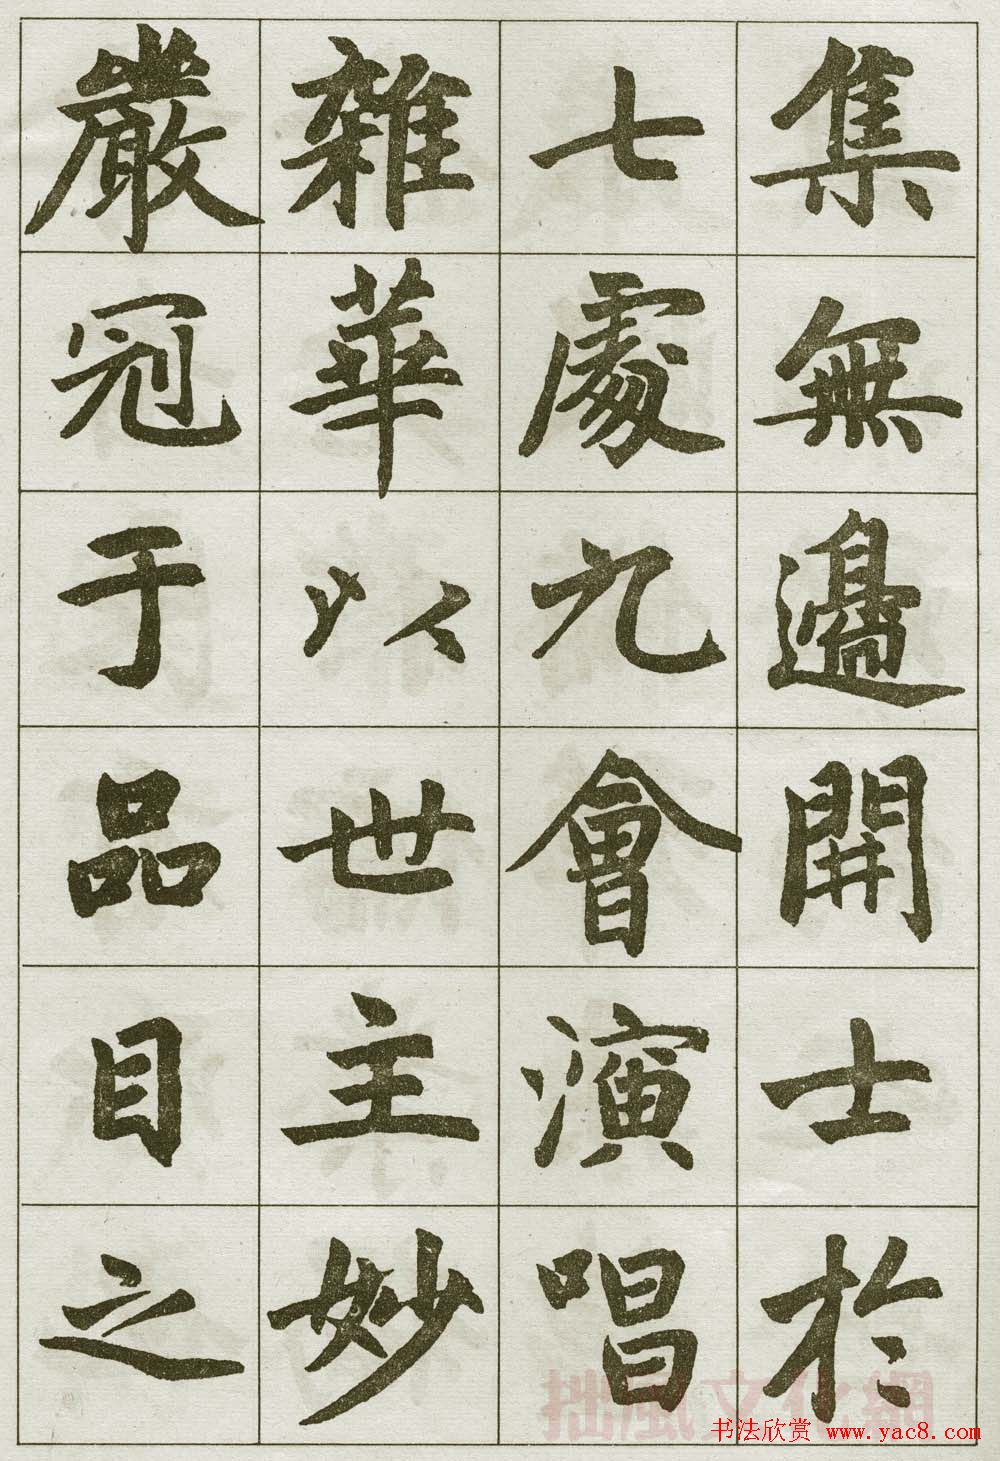 集無邊開士於
七處九會演唱
雜華以世主妙
嚴冠于品目之
拙風文化網
书法欣赏 www.yac8.com